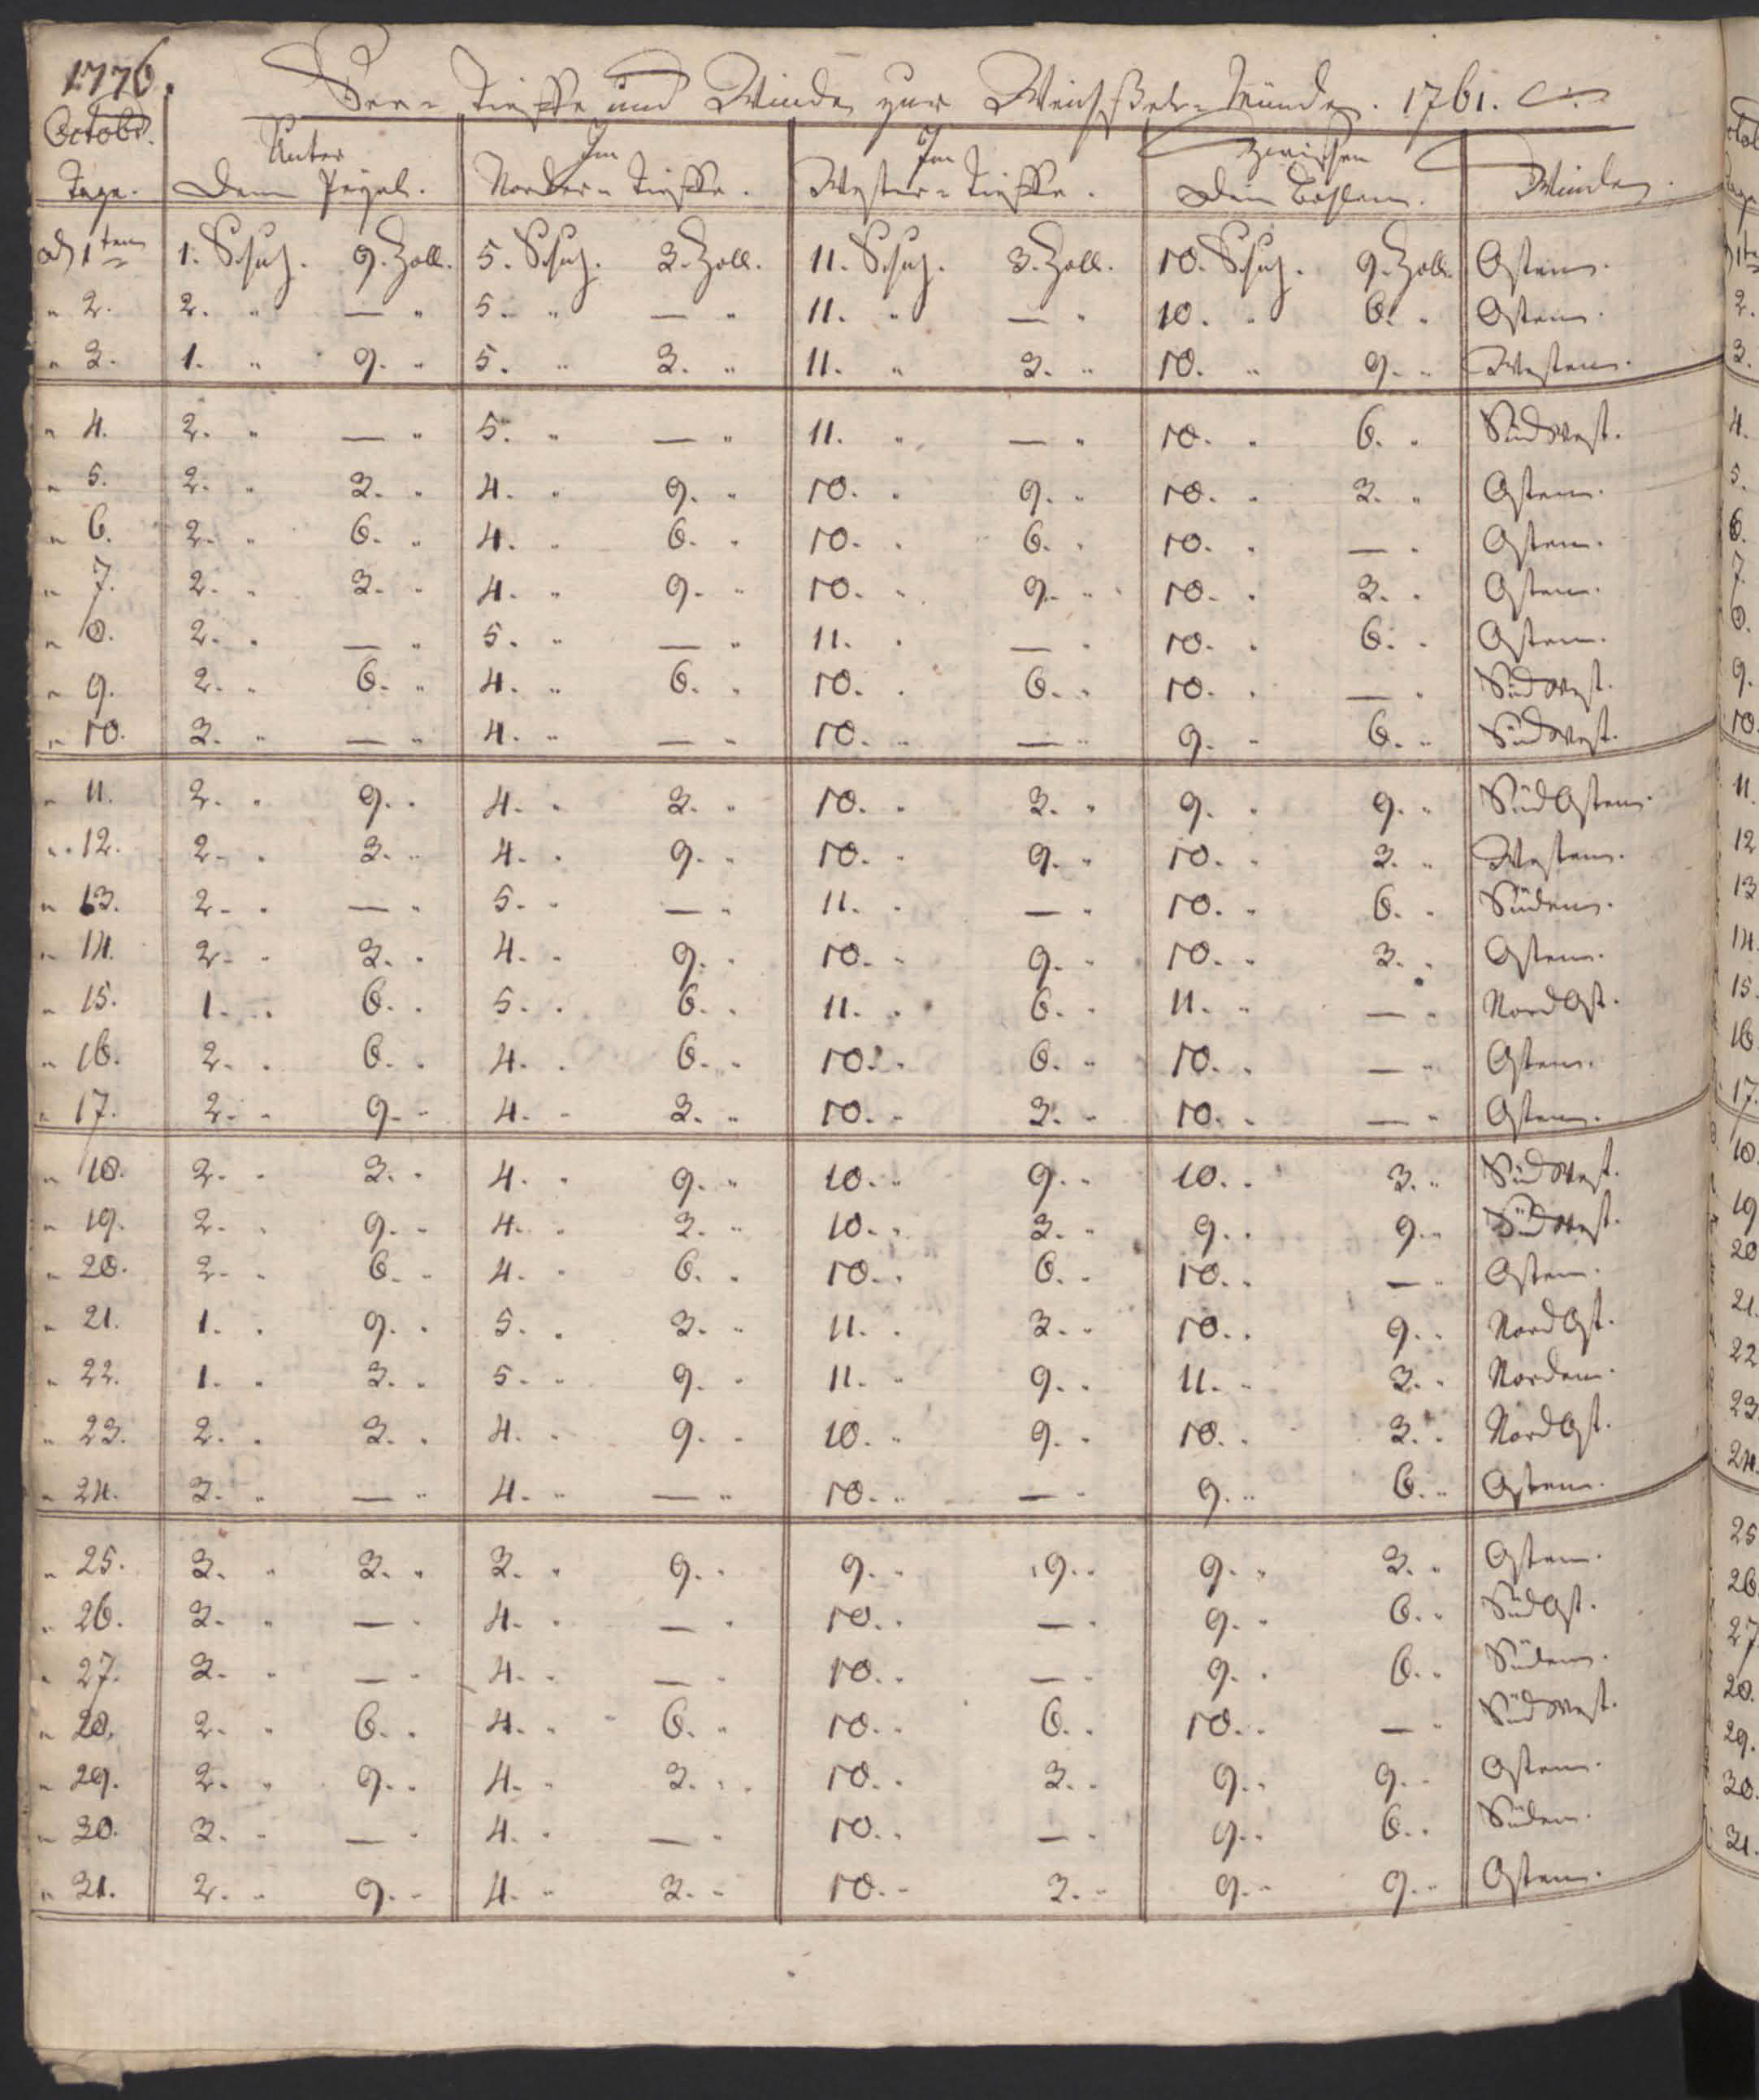 1776.
See- Tieffe und Winde zur Weichßel-Münde. 1761.
Octobr.
Tage. | Unter dem Pegel. | Im Norder-Tieffe. | Im Wester-Tieffe. | Zwischen den Bohlen. | Winde.
d 1ten 1. Schuh. 9. Zoll. 5. Schuh. 3. Zoll. 11. Schuh. 3. Zoll. 10. Schuh. 9. Zoll. Osten.
" 2. 2. " — " 5. " — " 11. " — " 10. " 6. " Osten.
" 3. 1. " 9. " 5. " 3. " 11. " 3. " 10. " 9. " Westen.
" 4. 2. " — " 5. " — " 11. " — " 10. " 6. " Südwest.
" 5. 2. " 3. " 4. " 9. " 10. " 9. " 10. " 3. " Osten.
" 6. 2. " 6. " 4. " 6. " 10. " 6. " 10. " — " Osten.
" 7. 2. " 3. " 4. " 9. " 10. " 9. " 10. " 3. " Osten.
" 8. 2. " — " 5. " — " 11. " — " 10. " 6. " Osten.
" 9. 2. " 6. " 4. " 6. " 10. " 6. " 10. " — " Südwest.
" 10. 3. " — " 4. " — " 10. " — " 9. " 6. " Südwest.
" 11. 2. " 9. " 4. " 3. " 10. " 3. " 9. " 9. " SüdOsten.
" 12. 2. " 3. " 4. " 9. " 10. " 9. " 10. " 3. " Westen.
" 13. 2. " — " 5. " — " 11. " — " 10. " 6. " Süden.
" 14. 2. " 3. " 4. " 9. " 10. " 9. " 10. " 3. " Osten.
" 15. 1. " 6. " 5. " 6. " 11. " 6. " 11. " — " NordOst.
" 16. 2. " 6. " 4. " 6. " 10. " 6. " 10. " — " Osten.
" 17. 2. " 9. " 4. " 3. " 10. " 3. " 10. " — " Osten.
" 18. 2. " 3. " 4. " 9. " 10. " 9. " 10. " 3. " Südwest.
" 19. 2. " 9. " 4. " 3. " 10. " 3. " 9. " 9. " Südwest.
" 20. 2. " 6. " 4. " 6. " 10. " 6. " 10. " — " Osten.
" 21. 1. " 9. " 5. " 3. " 11. " 3. " 10. " 9. " NordOst.
" 22. 1. " 3. " 5. " 9. " 11. " 9. " 11. " 3. " Norden.
" 23. 2. " 3. " 4. " 9. " 10. " 9. " 10. " 3. " NordOst.
" 24. 3. " — " 4. " — " 10. " — " 9. " 6. " Osten.
" 25. 3. " 3. " 3. " 9. " 9. " 9. " 9. " 3. " Osten.
" 26. 3. " — " 4. " — " 10. " — " 9. " 6. " SüdOst.
" 27. 3. " — " 4. " — " 10. " — " 9. " 6. " Süden.
" 28. 2. " 6. " 4. " 6. " 10. " 6. " 10. " — " Südwest.
" 29. 2. " 9. " 4. " 3. " 10. " 3. " 9. " 9. " Osten.
" 30. 3. " — " 4. " — " 10. " — " 9. " 6. " Süden.
" 31. 2. " 9. " 4. " 3. " 10. " 3. " 9. " 9. " Osten.